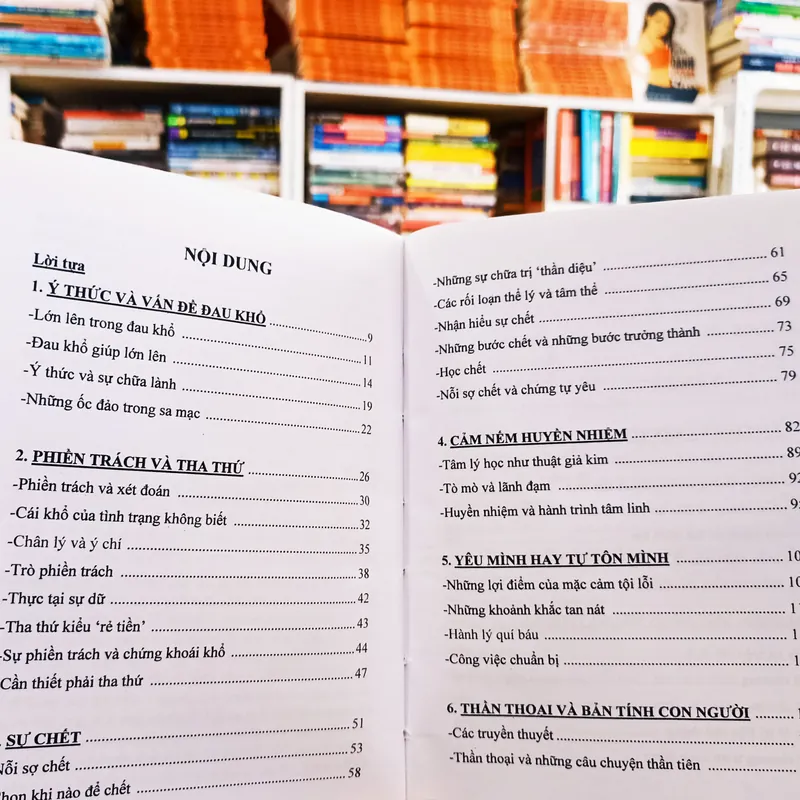 NỘI DUNG
Lời tựa
1. Ý THỨC VÀ VẤN ĐỀ ĐAU KHỔ ........ 9
-Lớn lên trong đau khổ ........ 11
-Đau khổ giúp lớn lên ........ 14
-Ý thức và sự chữa lành ........ 19
-Những ốc đảo trong sa mạc ........ 22
2. PHIỀN TRÁCH VÀ THA THỨ ........ 26
-Phiền trách và xét đoán ........ 30
-Cái khổ của tình trạng không biết ........ 32
-Chân lý và ý chí ........ 35
-Trò phiền trách ........ 38
-Thực tại sự dữ ........ 42
-Tha thứ kiểu ‘rẻ tiền’ ........ 43
-Sự phiền trách và chứng khoái khổ ........ 44
Cần thiết phải tha thứ ........ 47
. SỰ CHẾT ........ 51
Nỗi sợ chết ........ 53
họn khi nào để chết ........ 58
-Những sự chữa trị ‘thần diệu’ ........ 61
-Các rối loạn thể lý và tâm thể ........ 65
-Nhận hiểu sự chết ........ 69
-Những bước chết và những bước trưởng thành ........ 73
-Học chết ........ 75
-Nỗi sợ chết và chứng tự yêu ........ 79
4. CẢM NẾM HUYỀN NHIỆM ........ 82
-Tâm lý học như thuật giả kim ........ 89
-Tò mò và lãnh đạm ........ 92
-Huyền nhiệm và hành trình tâm linh ........ 9
5. YÊU MÌNH HAY TỰ TÔN MÌNH ........ 10
-Những lợi điểm của mặc cảm tội lỗi ........ 10
-Những khoảnh khắc tan nát ........ 11
-Hành lý quí báu ........ 1
-Công việc chuẩn bị ........ 1
6. THẦN THOẠI VÀ BẢN TÍNH CON NGƯỜI ........ 1
-Các truyền thuyết ........
-Thần thoại và những câu chuyện thần tiên ........